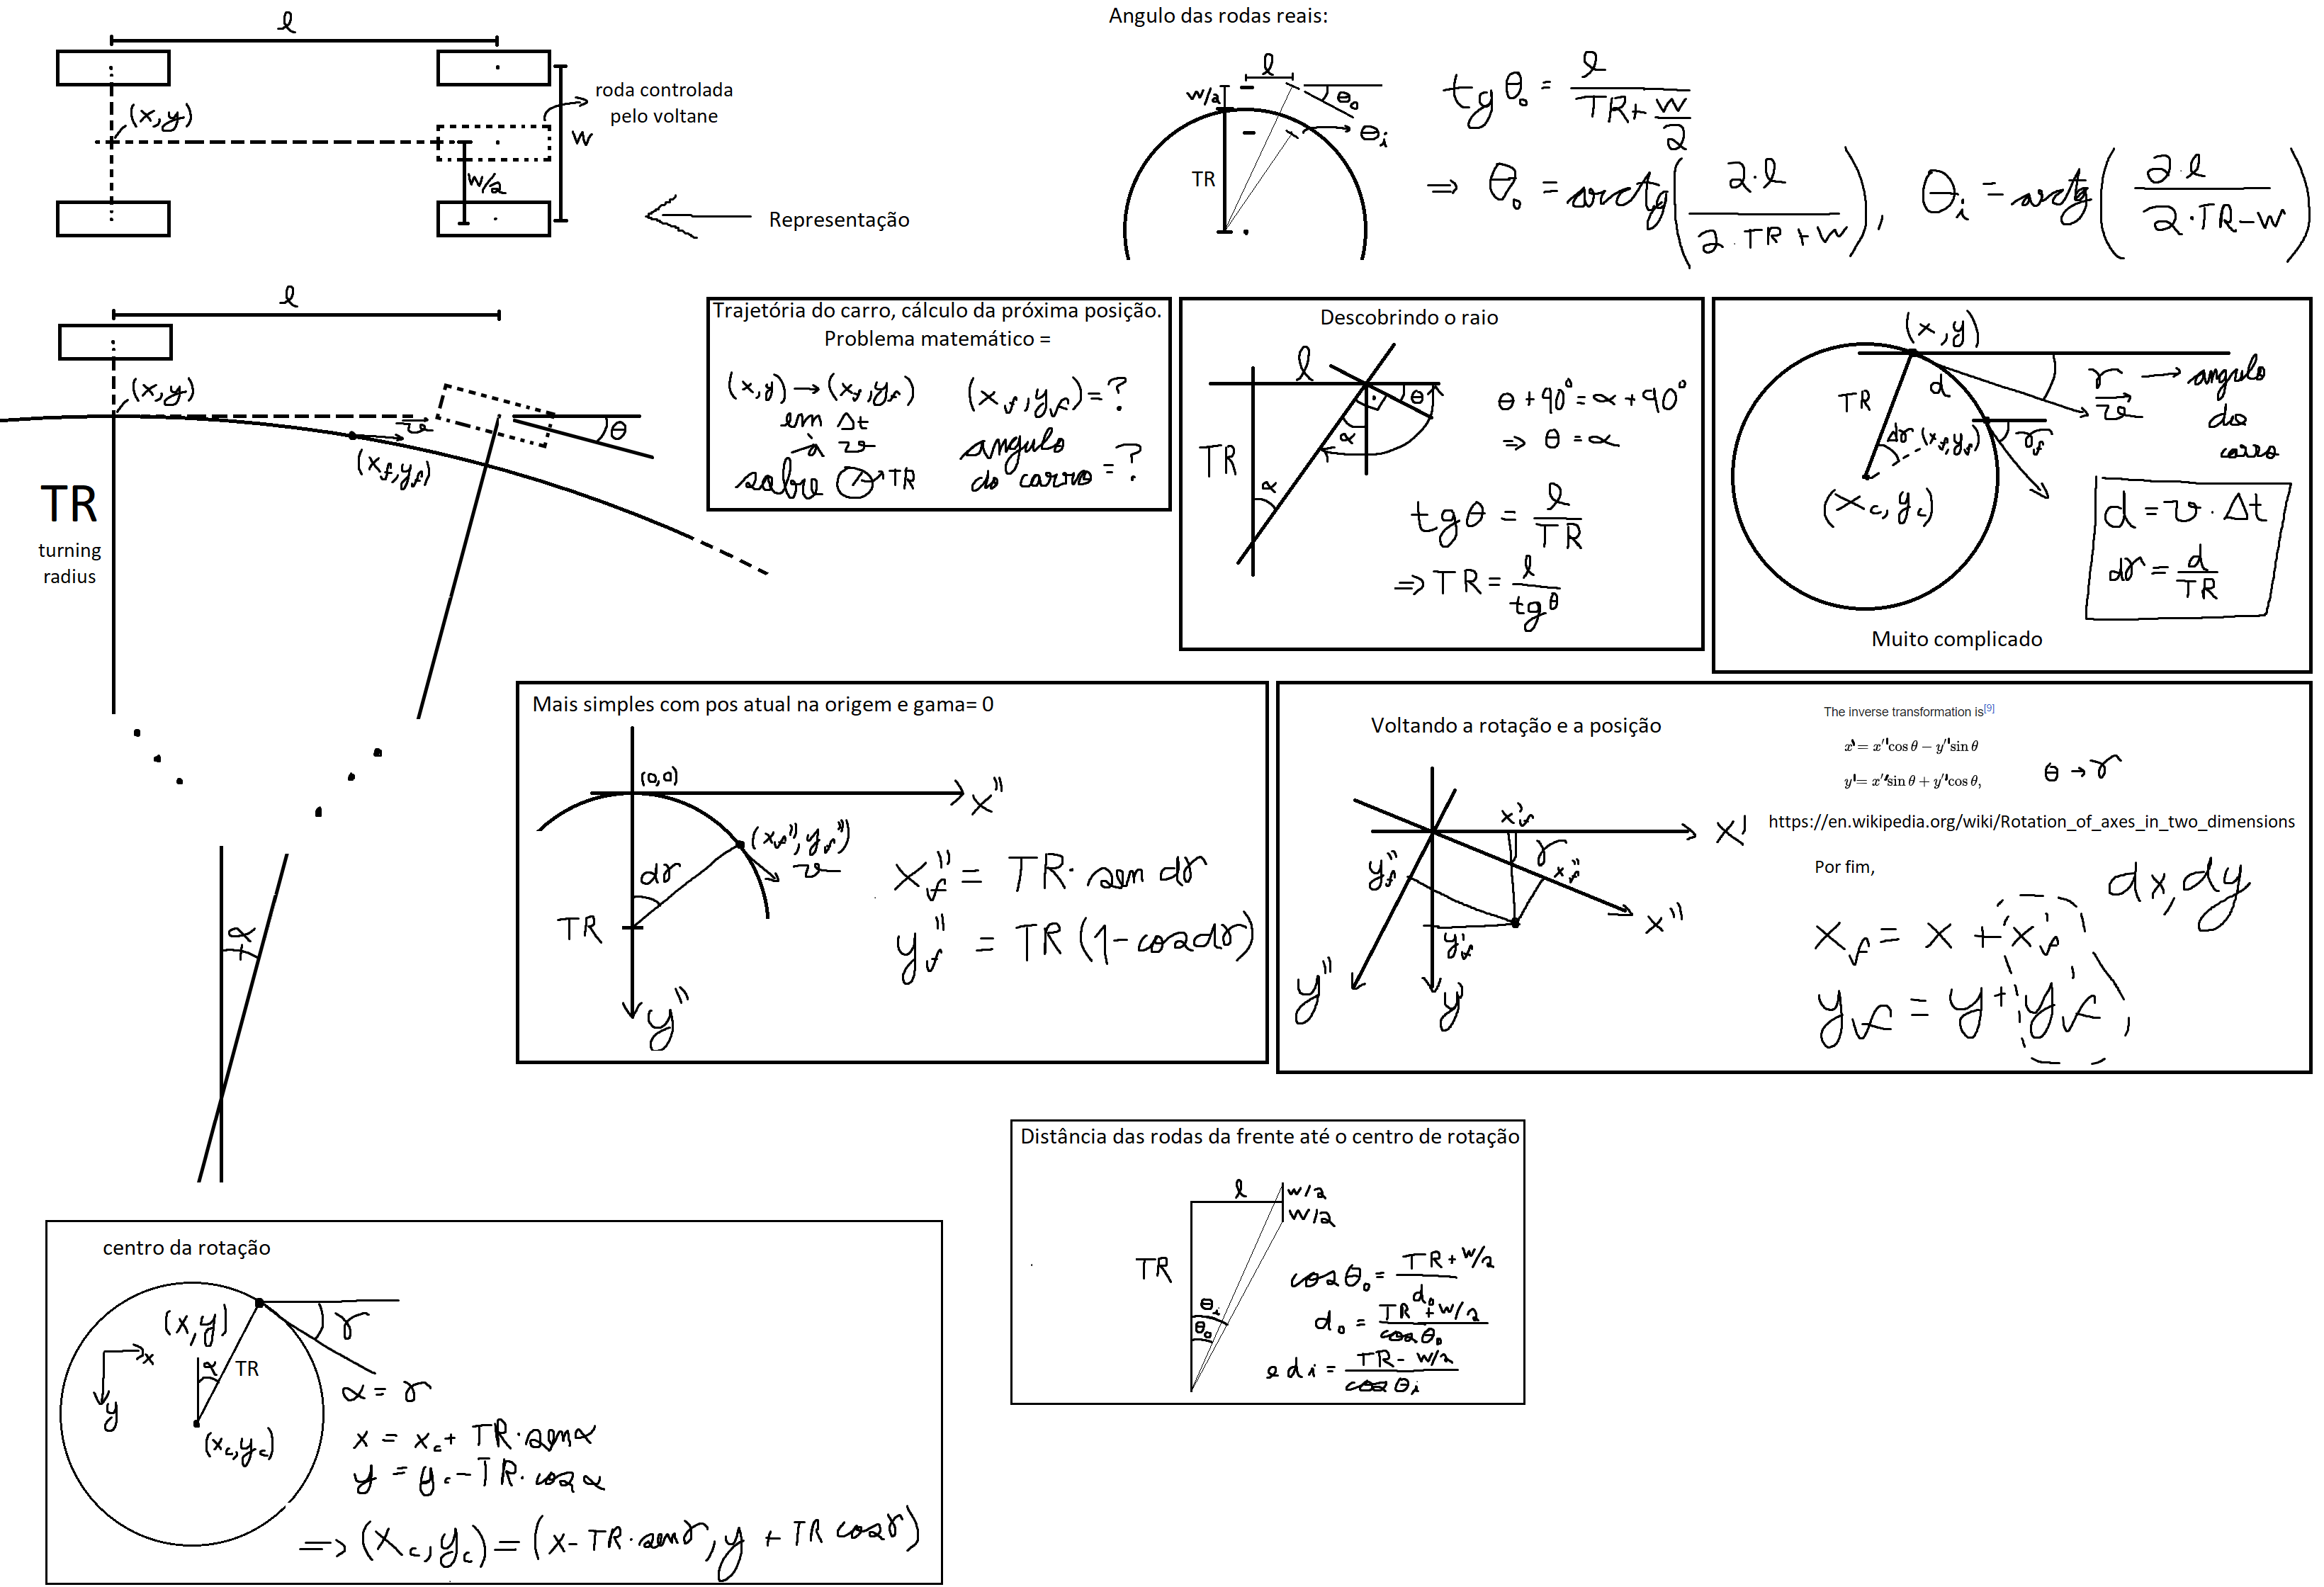 l
(x,y)
roda controlada
pelo voltane
w
w/2
Representação
Angulo das rodas reais:
l
w/2
θo
θi
TR
tgθo = l / (TR + w/2)
⇒ θo = arctg(2·l / (2·TR + W)), θi = arctg(2·l / (2·TR - W))
l
(x,y)
v
θ
(xf,yf)
TR
turning
radius
α
Trajetória do carro, cálculo da próxima posição.
Problema matemático =
(x,y) → (xf,yf)
em Δt
à v
sobre TR
(xf,yf) = ?
angulo
do carro = ?
Descobrindo o raio
l
θ
α
TR
α
θ + 90° = α + 90°
⇒ θ = α
tgθ = l / TR
⇒ TR = l / tgθ
(x,y)
TR
d
γ → angulo
do
carro
v
Δγ
(xf,yf)
γf
(xc,yc)
d = v · Δt
dγ = d / TR
Muito complicado
Mais simples com pos atual na origem e gama= 0
(0,0)
x''
(xf'',yf'')
v
dγ
TR
y''
xf'' = TR· sen dγ
yf'' = TR (1-cos dγ)
Voltando a rotação e a posição
x'f
x'
γ
xf''
yf''
x''
y'f
y''
y'
The inverse transformation is[9]
x' = x'' cos θ − y'' sin θ
y' = x'' sin θ + y'' cos θ,
θ → γ
https://en.wikipedia.org/wiki/Rotation_of_axes_in_two_dimensions
Por fim,
dx, dy
xf = x + x'f
yf = y + y'f
Distância das rodas da frente até o centro de rotação
l
w/2
w/2
TR
θi
θo
cosθo = (TR + w/2) / do
do = (TR + w/2) / cosθo
e di = (TR - w/2) / cosθi
centro da rotação
(x,y)
γ
x
y
α
TR
(xc,yc)
α = γ
x = xc + TR·senα
y = yc - TR·cosα
=> (xc,yc) = (x - TR·senγ, y + TR cosγ)